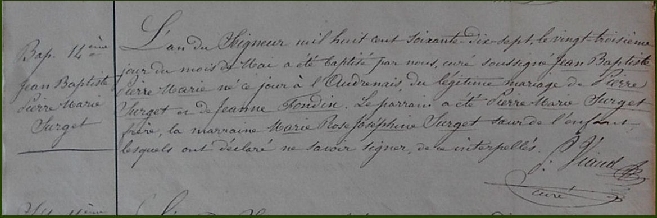 Bap. 14ème
Jean Baptiste
Pierre Marie
Surget
L'an du Seigneur mil huit cent soixante-dix-sept, le vingt-troisième
jour du mois de Mai a été baptisé par nous, curé soussigné Jean Baptiste
Pierre Marie né ce jour à l'Audrenais, du légitime mariage de Pierre
Surget et de Jeanne Hondin. Le parrain a été Pierre Marie Surget
frère, la marraine Marie Rose Joséphine Surget sœur de l'enfant,
lesquels ont déclaré ne savoir signer, de ce interpellés.
J. Viaud
curé